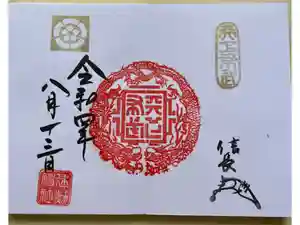 天下布武
天下布武
信長
令和四年
八月十三日
建勲神社